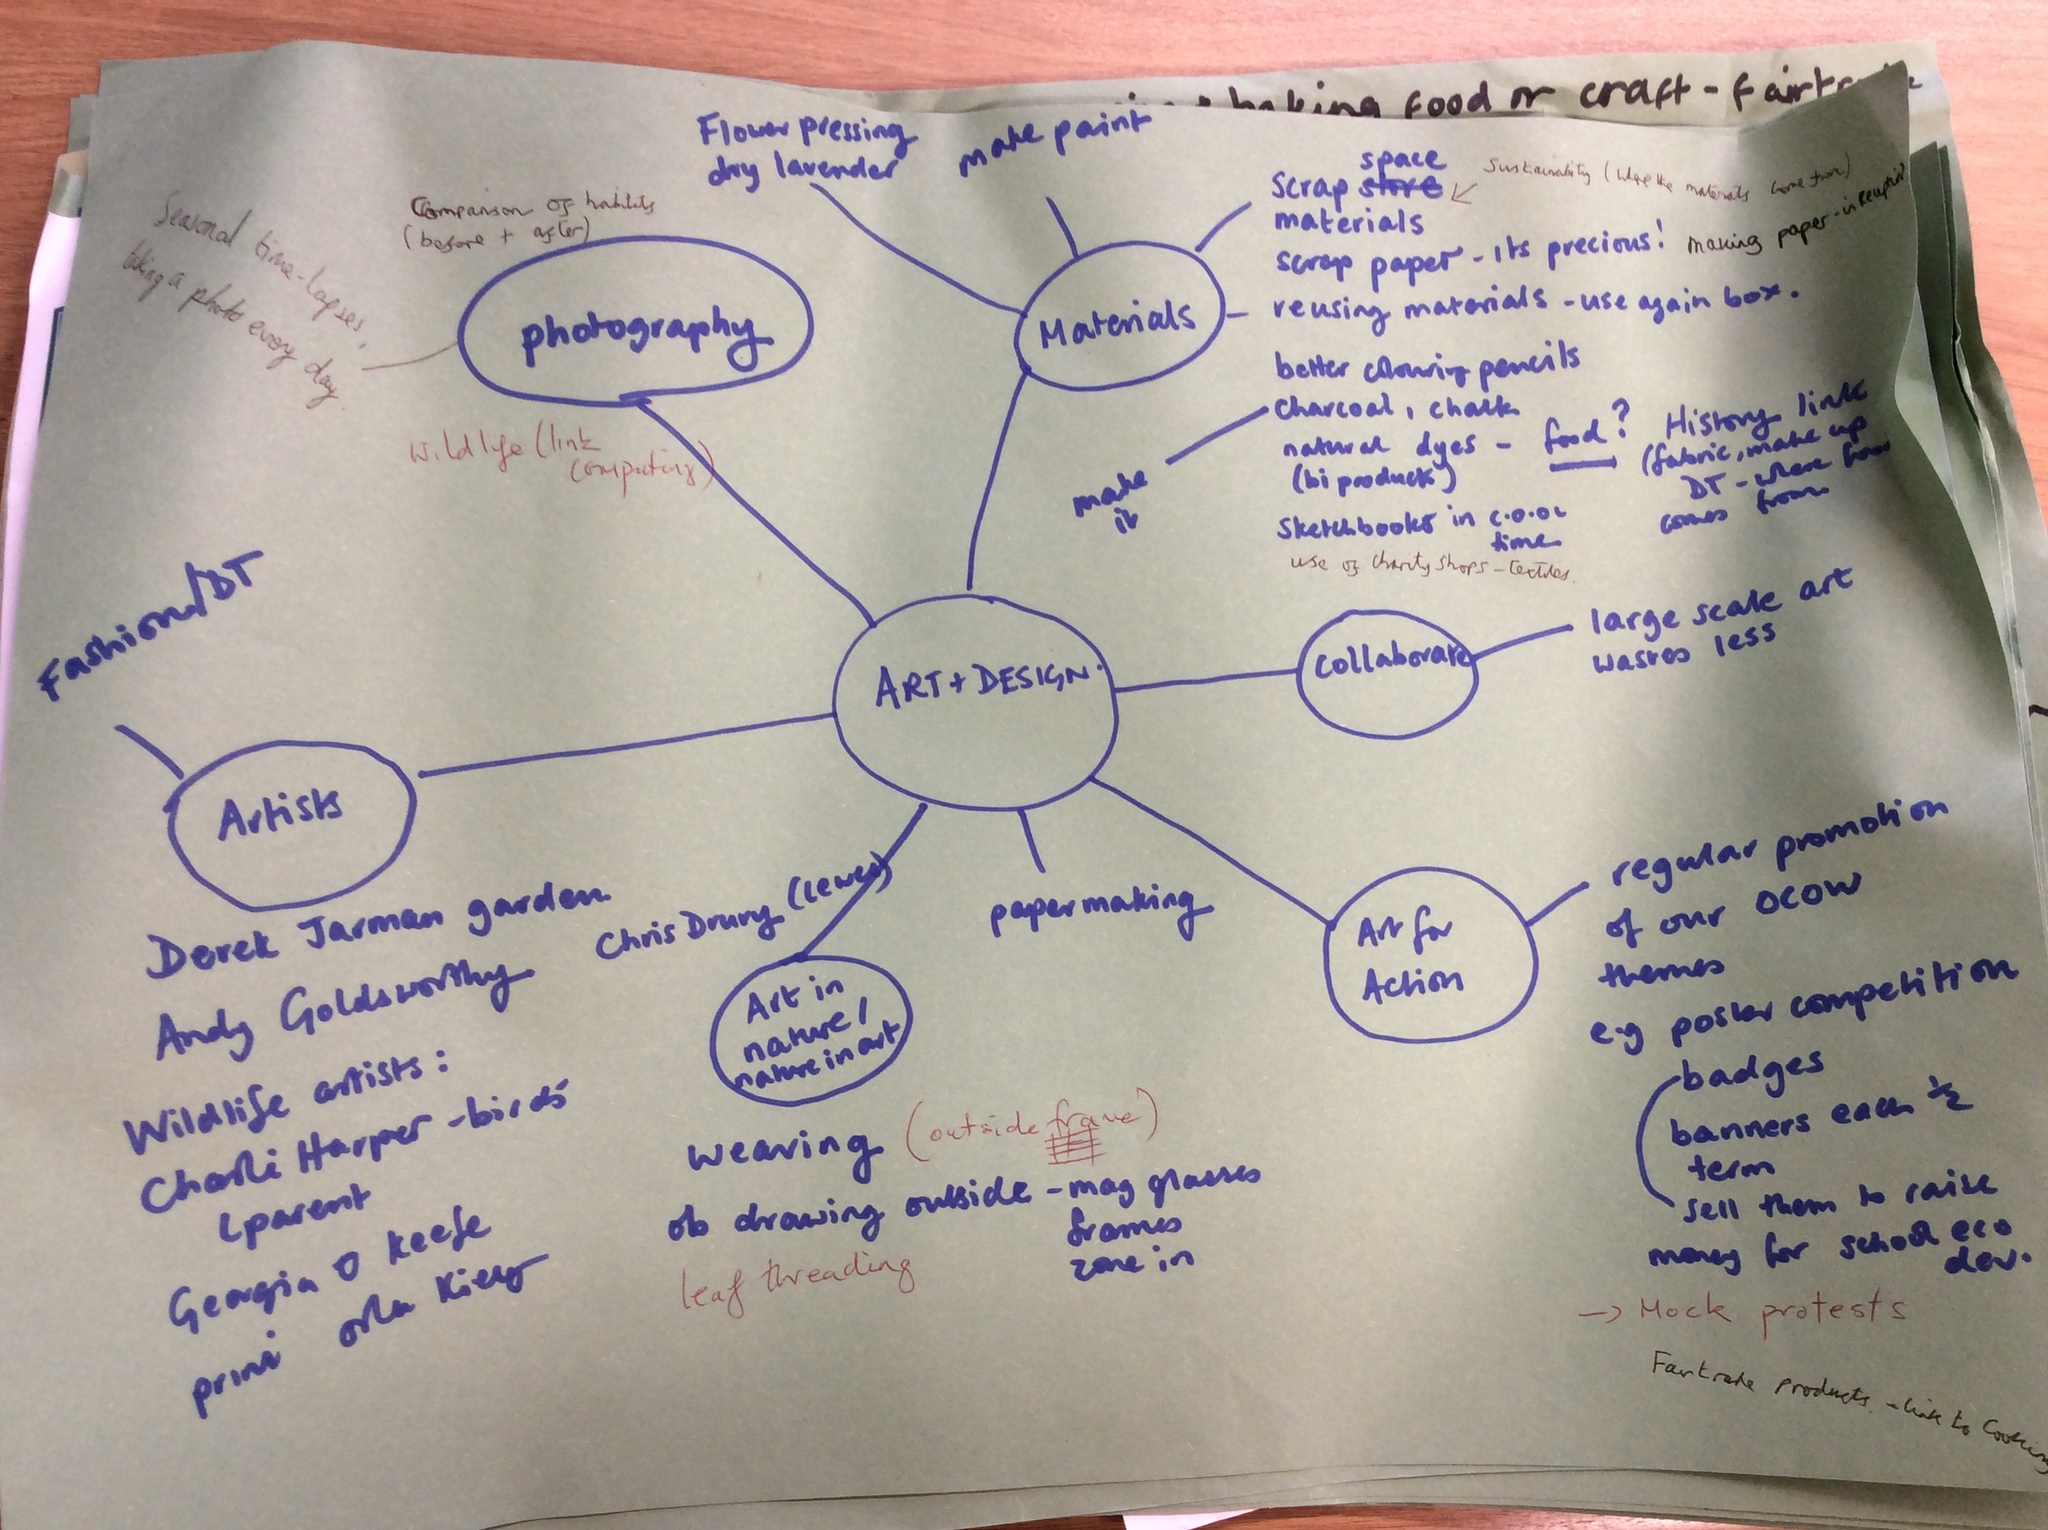 baking food or craft - fairtr
Flower pressing
dry lavender
make paint
space
scrap store
materials
Sustainability (where the materials come from)
scrap paper - its precious!
making paper - in reception
reusing materials - use again box.
Materials
better colouring pencils
charcoal, chalk
natural dyes - food?
(biproducts)
make
it
History link
(fabric, make up
DT - where
comes from
Sketchbooks in c.o.o.l
time
use of charity shops - textiles.
Comparison of habitats
(before + after)
Seasonal time-lapses,
taking a photo every day.
photography
Wildlife (link
computing)
Fashion/DT
ART + DESIGN
collaborate
large scale art
wastes less
Artists
Derek Jarman garden
Andy Goldsworthy
Chris Drury (Lewes)
Wildlife artists:
Charli Harper - birds
parent
Georgia O Keefe
print orla Kiely
Art in
nature/
nature in art
papermaking
weaving (outside frame)
ob drawing outside - mag glasses
frames
zone in
leaf threading
Art for
Action
regular promotion
of our OCOW
themes
e.g poster competition
badges
banners each ½
term
sell them to raise
money for school eco
dev.
→ Mock protests
Fairtrade products - link to Cooking